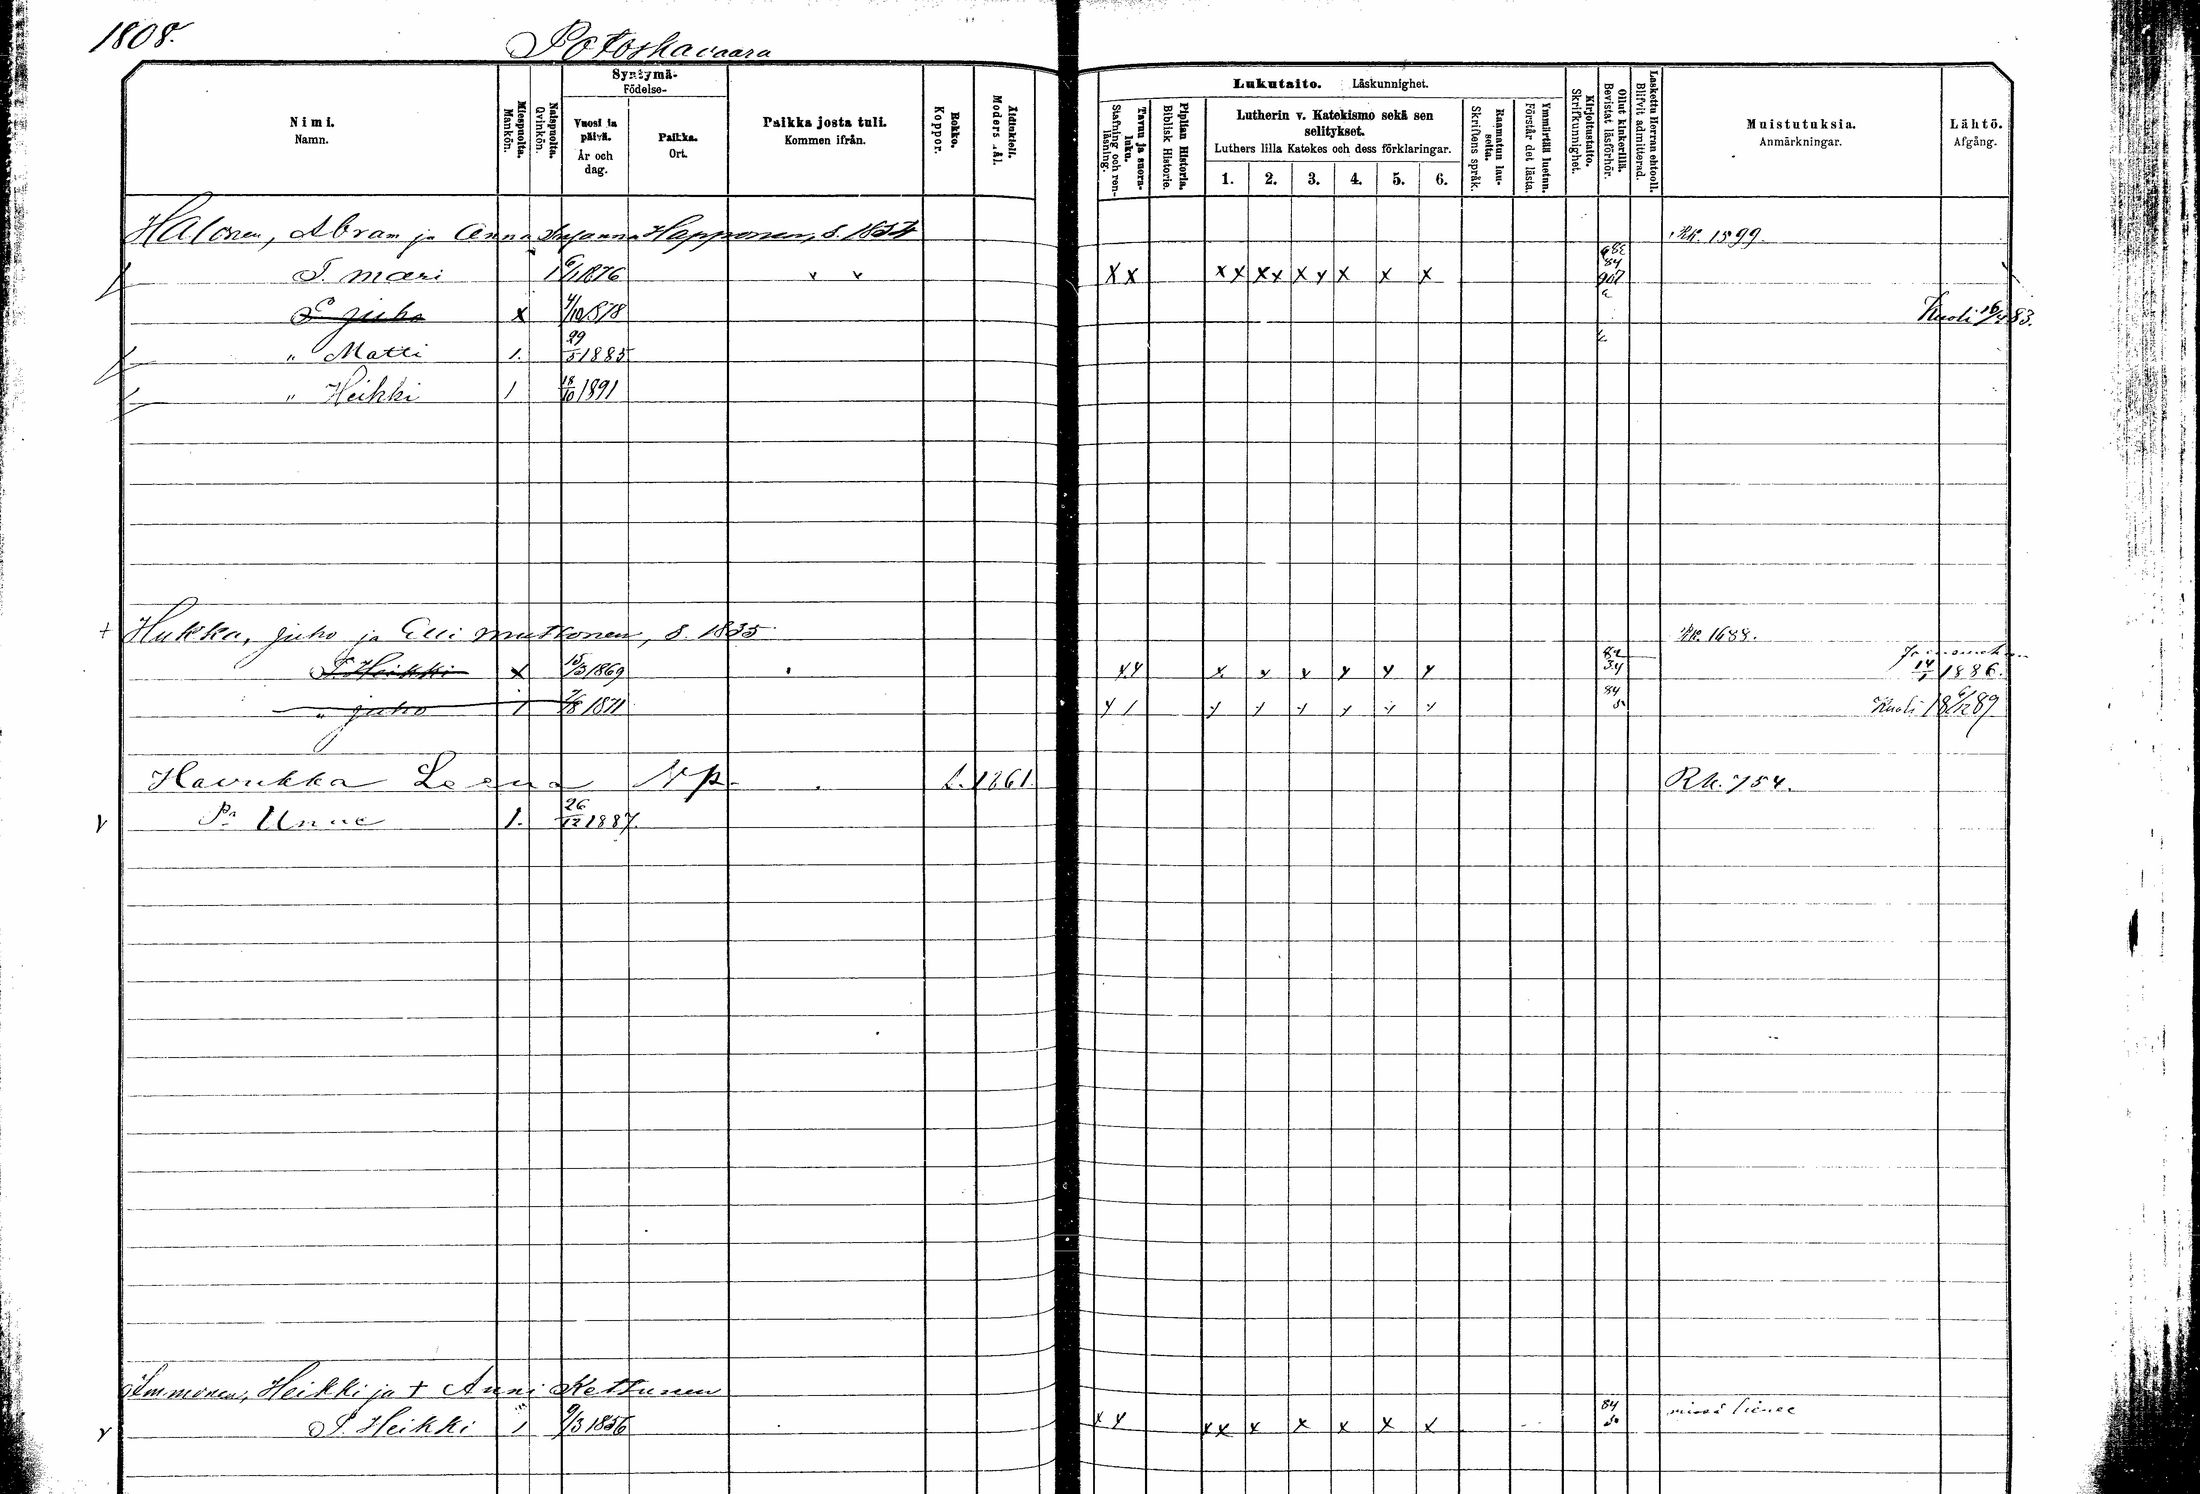 1808.
Potoskavaara
Nimi.
Namn.
Miespuolta.
Mankön.
Naispuolta.
Qvinkön.
Syntymä-
Födelse-
Vuosi ja päivä.
År och dag.
Paikka.
Ort.
Paikka josta tuli.
Kommen ifrån.
Rokko.
Koppor.
Äidinkieli.
Modersmål.
Lukutaito. Läskunnighet.
Tavuu ja suora-luku.
Stafning och ren-läsning.
Piplian Historia.
Biblisk Historie.
Lutherin v. Katekismo sekä sen selitykset.
Luthers lilla Katekes och dess förklaringar.
1. 2. 3. 4. 5. 6.
Raamatun lau-seita.
Skriftens språk.
Ymmärtää luetun.
Förstår det lästa.
Kirjoitustaito.
Skrifkunnighet.
Ollut kinkerillä.
Bevistat läsförhör.
Laskettu Herran ehtooll.
Blifvit admitterad.
Muistutuksia.
Anmärkningar.
Lähtö.
Afgång.
Halonen, Abram ja Anna Susanna Happonen, s. 1854 Rk. 1599.
T. Mari 1 6/1 1876 x x x x x x x x x x x x
P. Juho x 4/10 878 Kuoli 16/4 83.
" Matti 1. 29/5 1885
" Heikki 1 18/10 1891
+ Hukka, Juho ja Elli Mutkonen, s. 1835 Rk. 1688.
P. Heikki x 15/3 1869 x x x x x x x x 14/1 1886.
" Juho 1 7/8 1871 x 1 x x x x x x 84 Kuoli 18 6/12 89
Havukka Leena Np. L. 1861. Rk. 754.
Pa Unue 1. 26/12 1887.
Immonen, Heikki ja + Anni Kettunen
P. Heikki 1 9/3 1856 x x x x x x x x x 84 missä lienee